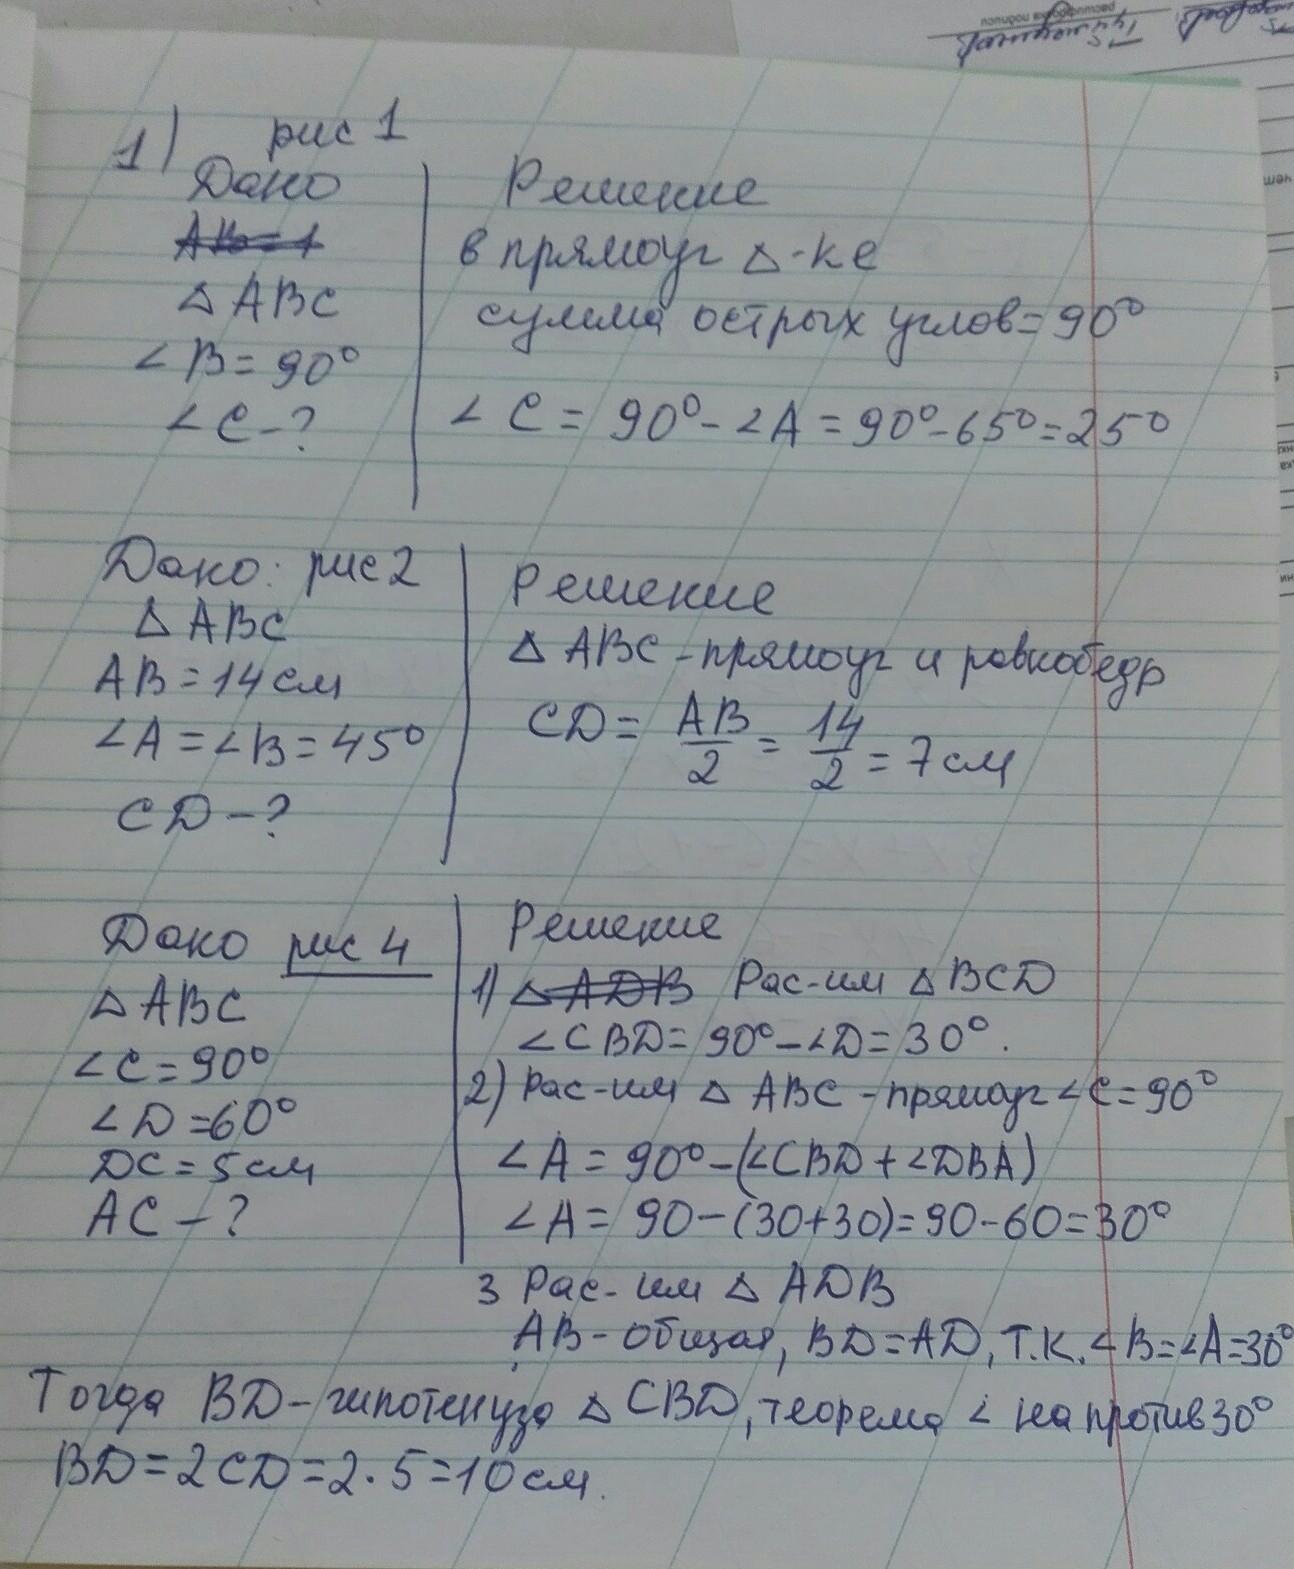 1) рис 1
Дано
△ ABC
∠ B = 90°
∠ C - ?
Решение
в прямоуг △-ке
сумма острых углов = 90°
∠ C = 90° - ∠A = 90° - 65° = 25°
Дано: рис 2
△ ABC
AB = 14 см
∠A = ∠B = 45°
CD - ?
Решение
△ ABC - прямоуг и равнобедр
CD = AB/2 = 14/2 = 7 см
Дано рис 4
△ ABC
∠C = 90°
∠D = 60°
DC = 5 см
AC - ?
Решение
1) △ ADB Рас-им △ BCD
∠CBD = 90° - ∠D = 30°.
2) Рас-им △ ABC - прямоуг ∠C = 90°
∠A = 90° - (∠CBD + ∠DBA)
∠A = 90 - (30+30) = 90 - 60 = 30°
3 Рас-им △ ADB
AB - общая, BD = AD, т.к. ∠B = ∠A = 30°
Тогда BD - гипотенуза △ CBD, теорема ∠ на против 30°
BD = 2CD = 2 · 5 = 10 см.
расшифровка подписи